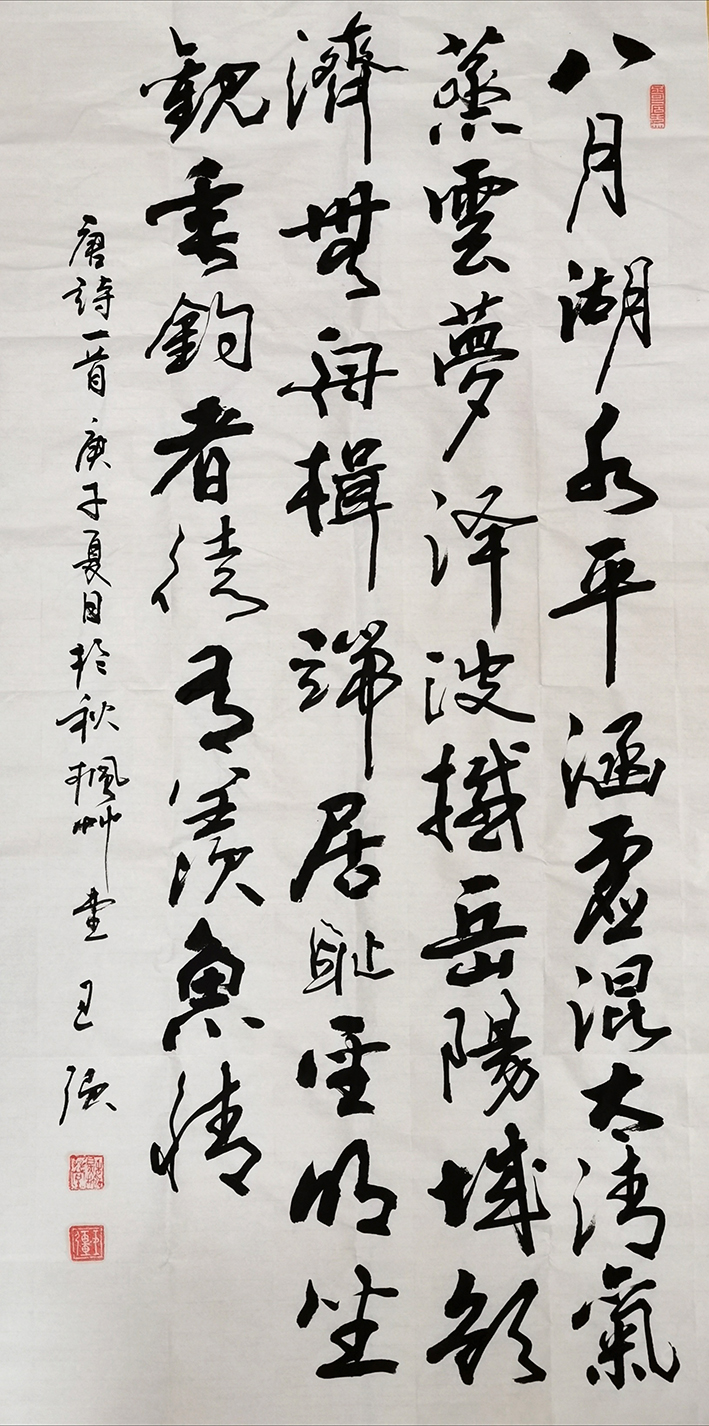 八月湖水平涵虚混太清氣
蒸雲夢澤波撼岳陽城欲
濟無舟楫端居恥聖明坐
觀垂釣者徒有羨魚情
唐詩一首庚子夏日於秋楓艸堂王强